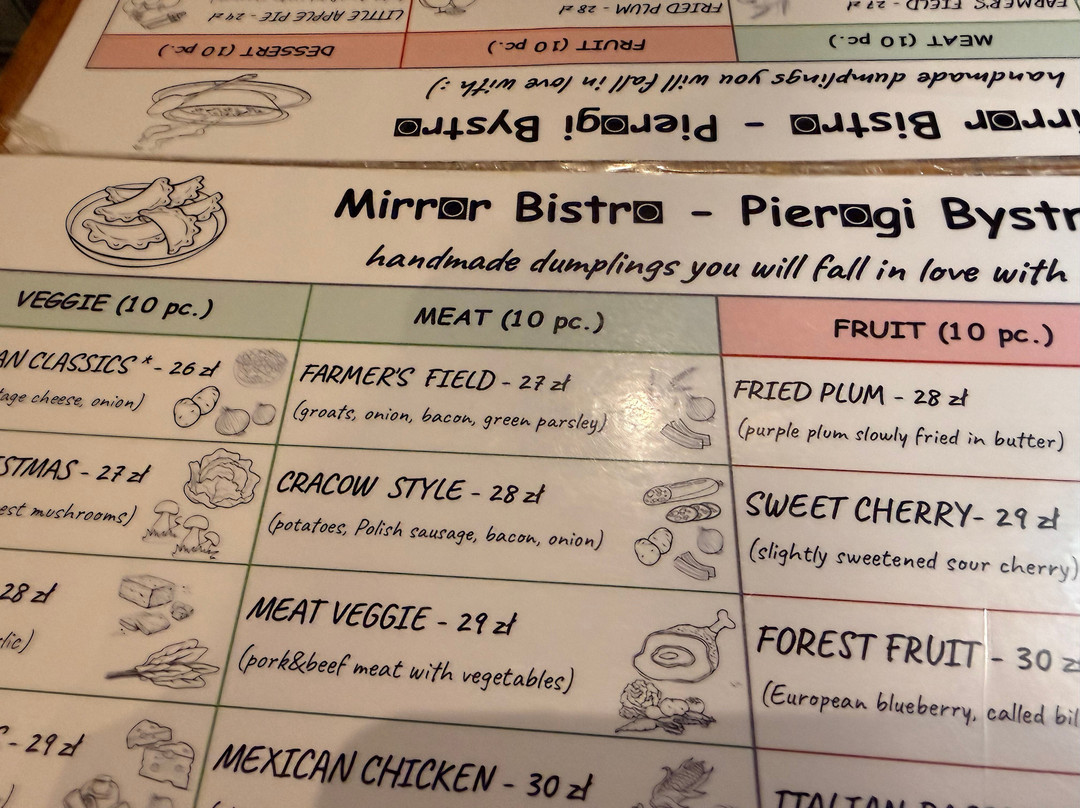 LITTLE APPLE PIE - 24 zł
FRIED PLUM - 28 zł
FARMER'S FIELD - 27 zł
DESSERT (10 pc.)
FRUIT (10 pc.)
MEAT (10 pc.)
handmade dumplings you will fall in love with :)
Bistro - Pierogi Bystro
Mirror Bistro - Pierogi
handmade dumplings you will fall in love with
VEGGIE (10 pc.)
CLASSICS * - 26 zł
cheese, onion)
- 27 zł
mushrooms)
28 zł
- 29 zł
MEAT (10 pc.)
FARMER'S FIELD - 27 zł
(groats, onion, bacon, green parsley)
CRACOW STYLE - 28 zł
(potatoes, Polish sausage, bacon, onion)
MEAT VEGGIE - 29 zł
(pork&beef meat with vegetables)
MEXICAN CHICKEN - 30 zł
FRUIT (10 pc.)
FRIED PLUM - 28 zł
(purple plum slowly fried in butter)
SWEET CHERRY- 29 zł
(slightly sweetened sour cherry)
FOREST FRUIT - 30 zł
(European blueberry, called
ITALIAN